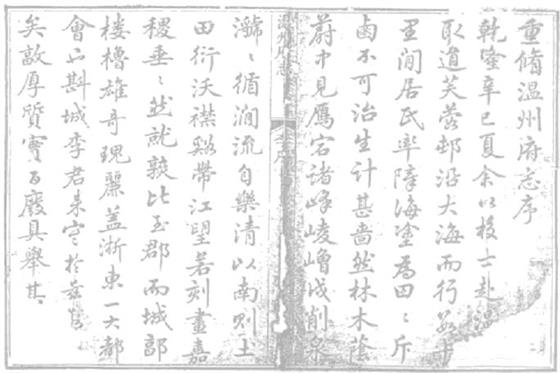 重脩溫州府志序
乾隆辛巳夏余以校士赴溫
取道芙蓉邨沿大海而行數十
里間居民率障海塗為田田斥
鹵不可治生計甚嗇然林木蔭
蔚中見鴈宕諸峰崚嶒峻削泉
㶁㶁循澗流自樂清以南則土
田衍沃襟谿帶江望若刻畫嘉
稷垂垂然就穫比至郡而城郭
樓櫓雄奇瑰麗蓋浙東一大都
會也斟城李君來守於茲
矣敦厚質實百廢具舉其